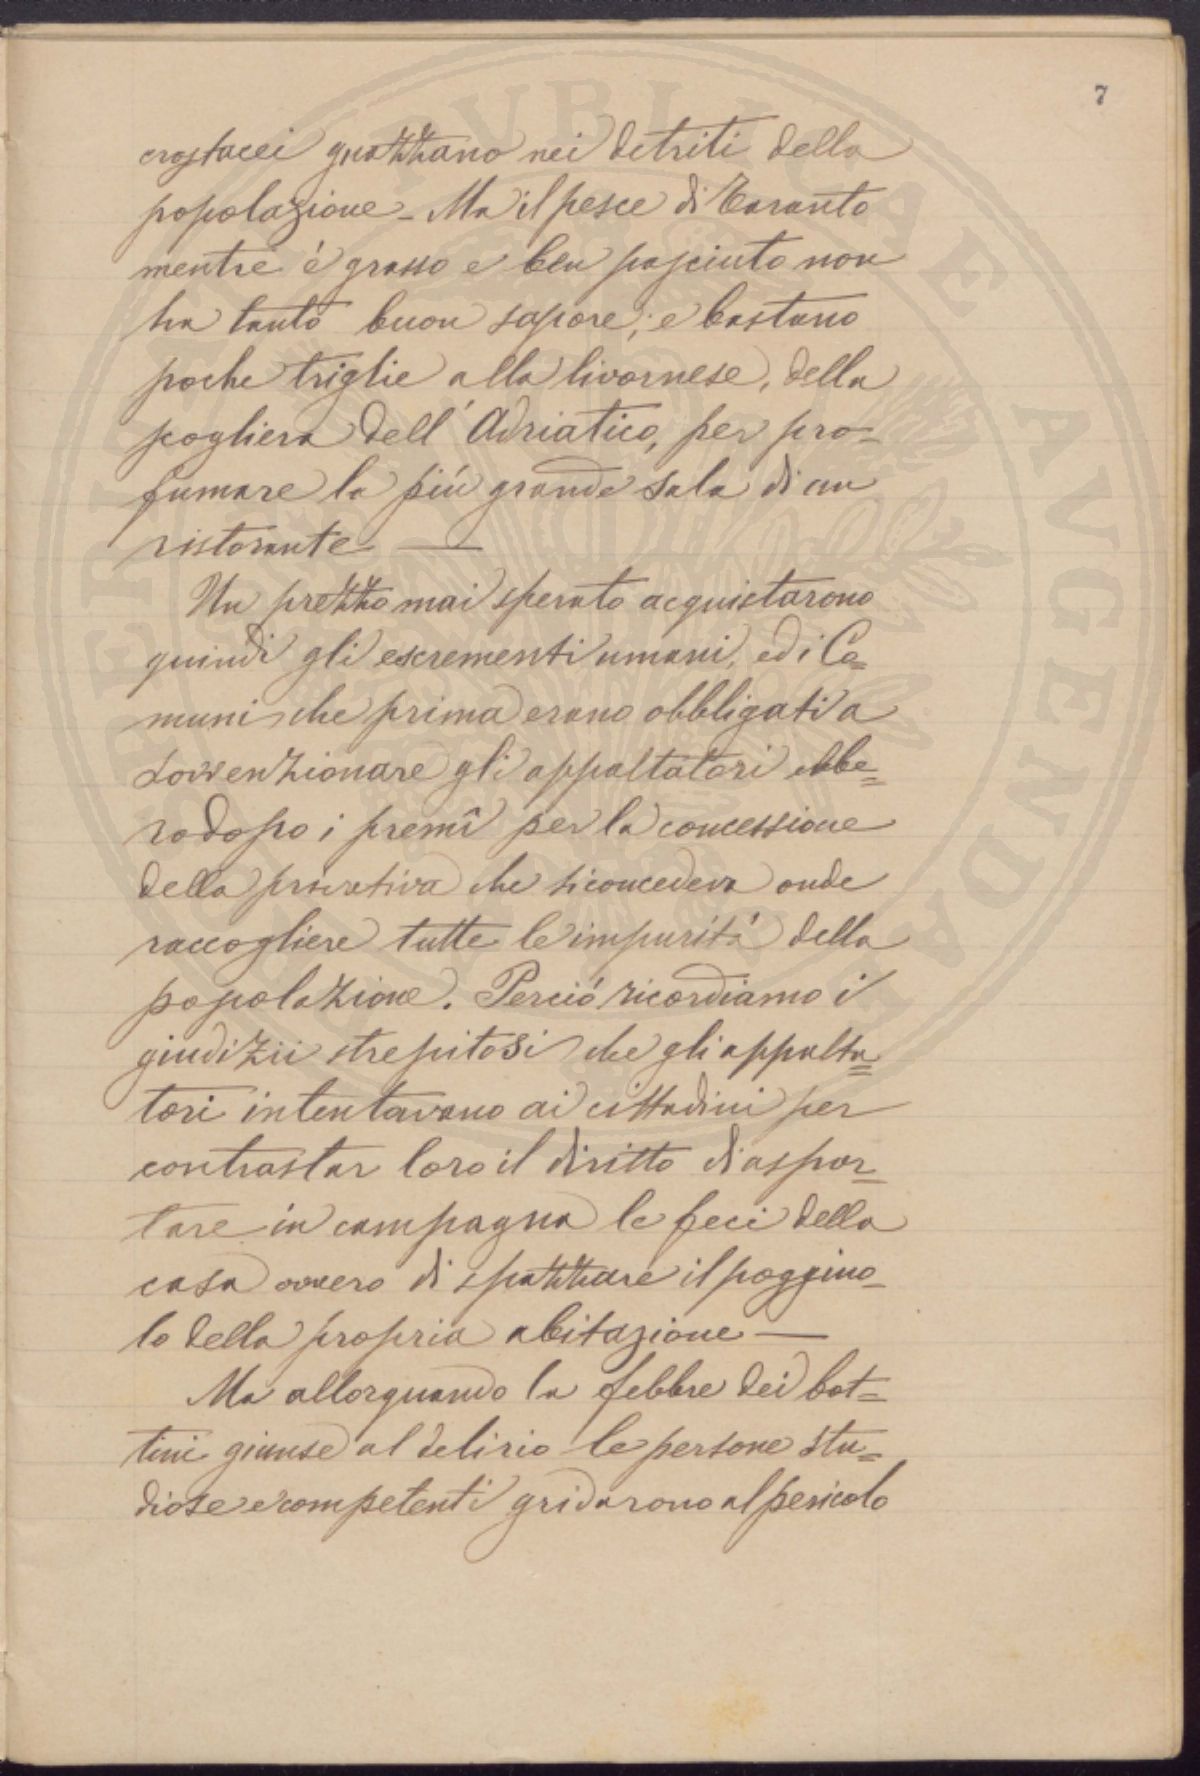 7
crostacei guazzano nei detriti della
popolazione – Ma il pesce di Taranto
mentre é grasso e ben pasciuto non
ha tanto buon sapore; e bastano
poche triglie alla livornese, della
scogliera dell'Adriatico, per pro-
fumare la piú grande sala di un
ristorante —
Un prezzo mai sperato acquistarono
quindi gli escrementi umani, ed i Co=
muni che prima erano obbligati a
sovvenzionare gli appaltatori ebbe=
ro dopo i premî per la concessione
della privativa che si concedeva onde
raccogliere tutte le impuritá della
popolazione. Perció ricordiamo i
giudizii strepitosi che gli appalta=
tori intentavano ai cittadini per
contrastar loro il diritto di aspor=
tare in campagna le feci della
casa ovvero di spazzare il poggiuo-
lo della propria abitazione —
Ma allorquando la febbre dei bot=
tini giunse al delirio le persone stu=
diose e competenti gridarono al pericolo
PUBLICAE AUGENDAE